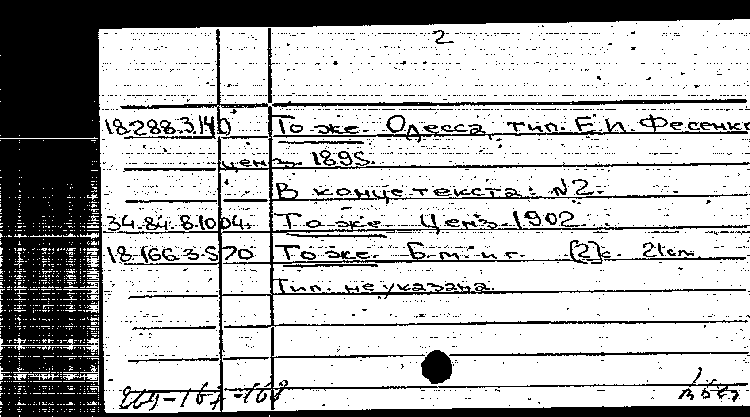 2
18.288.3.140 То же. Одесса, тип. Е.И. Фесенко
ценз. 1895.
В конце текста: №2.
34.84.8.1004. То же. Ценз. 1902
18.166.3.570 То же. Б.м. и г. (2)с. 21см.
Тип. не указана.